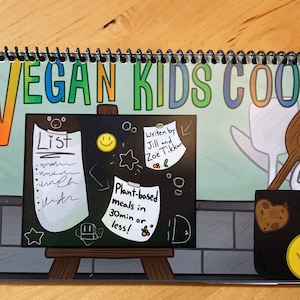 VEGAN KIDS COO
List
Writen by
Jill and
Zoe Tikku
Plant-based
meals in
30min or
less!